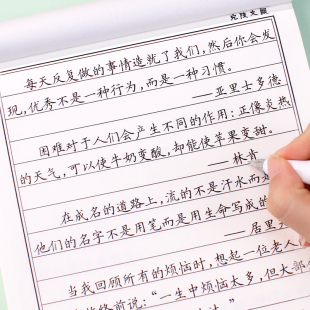 每天反复做的事情造就了我们,然后你会发
现,优秀不是一种行为,而是一种习惯。
——亚里士多德
困难对于人们会产生不同的作用:正像炎热
的天气,可以使牛奶变酸,却能使苹果变甜。
——林肯
在成名的道路上,流的不是汗水而
他们的名字不是用笔而是用生命写成的
——居里
当我回顾所有的烦恼时,想起一位老人
终前说:“一生中烦恼太多,但大部